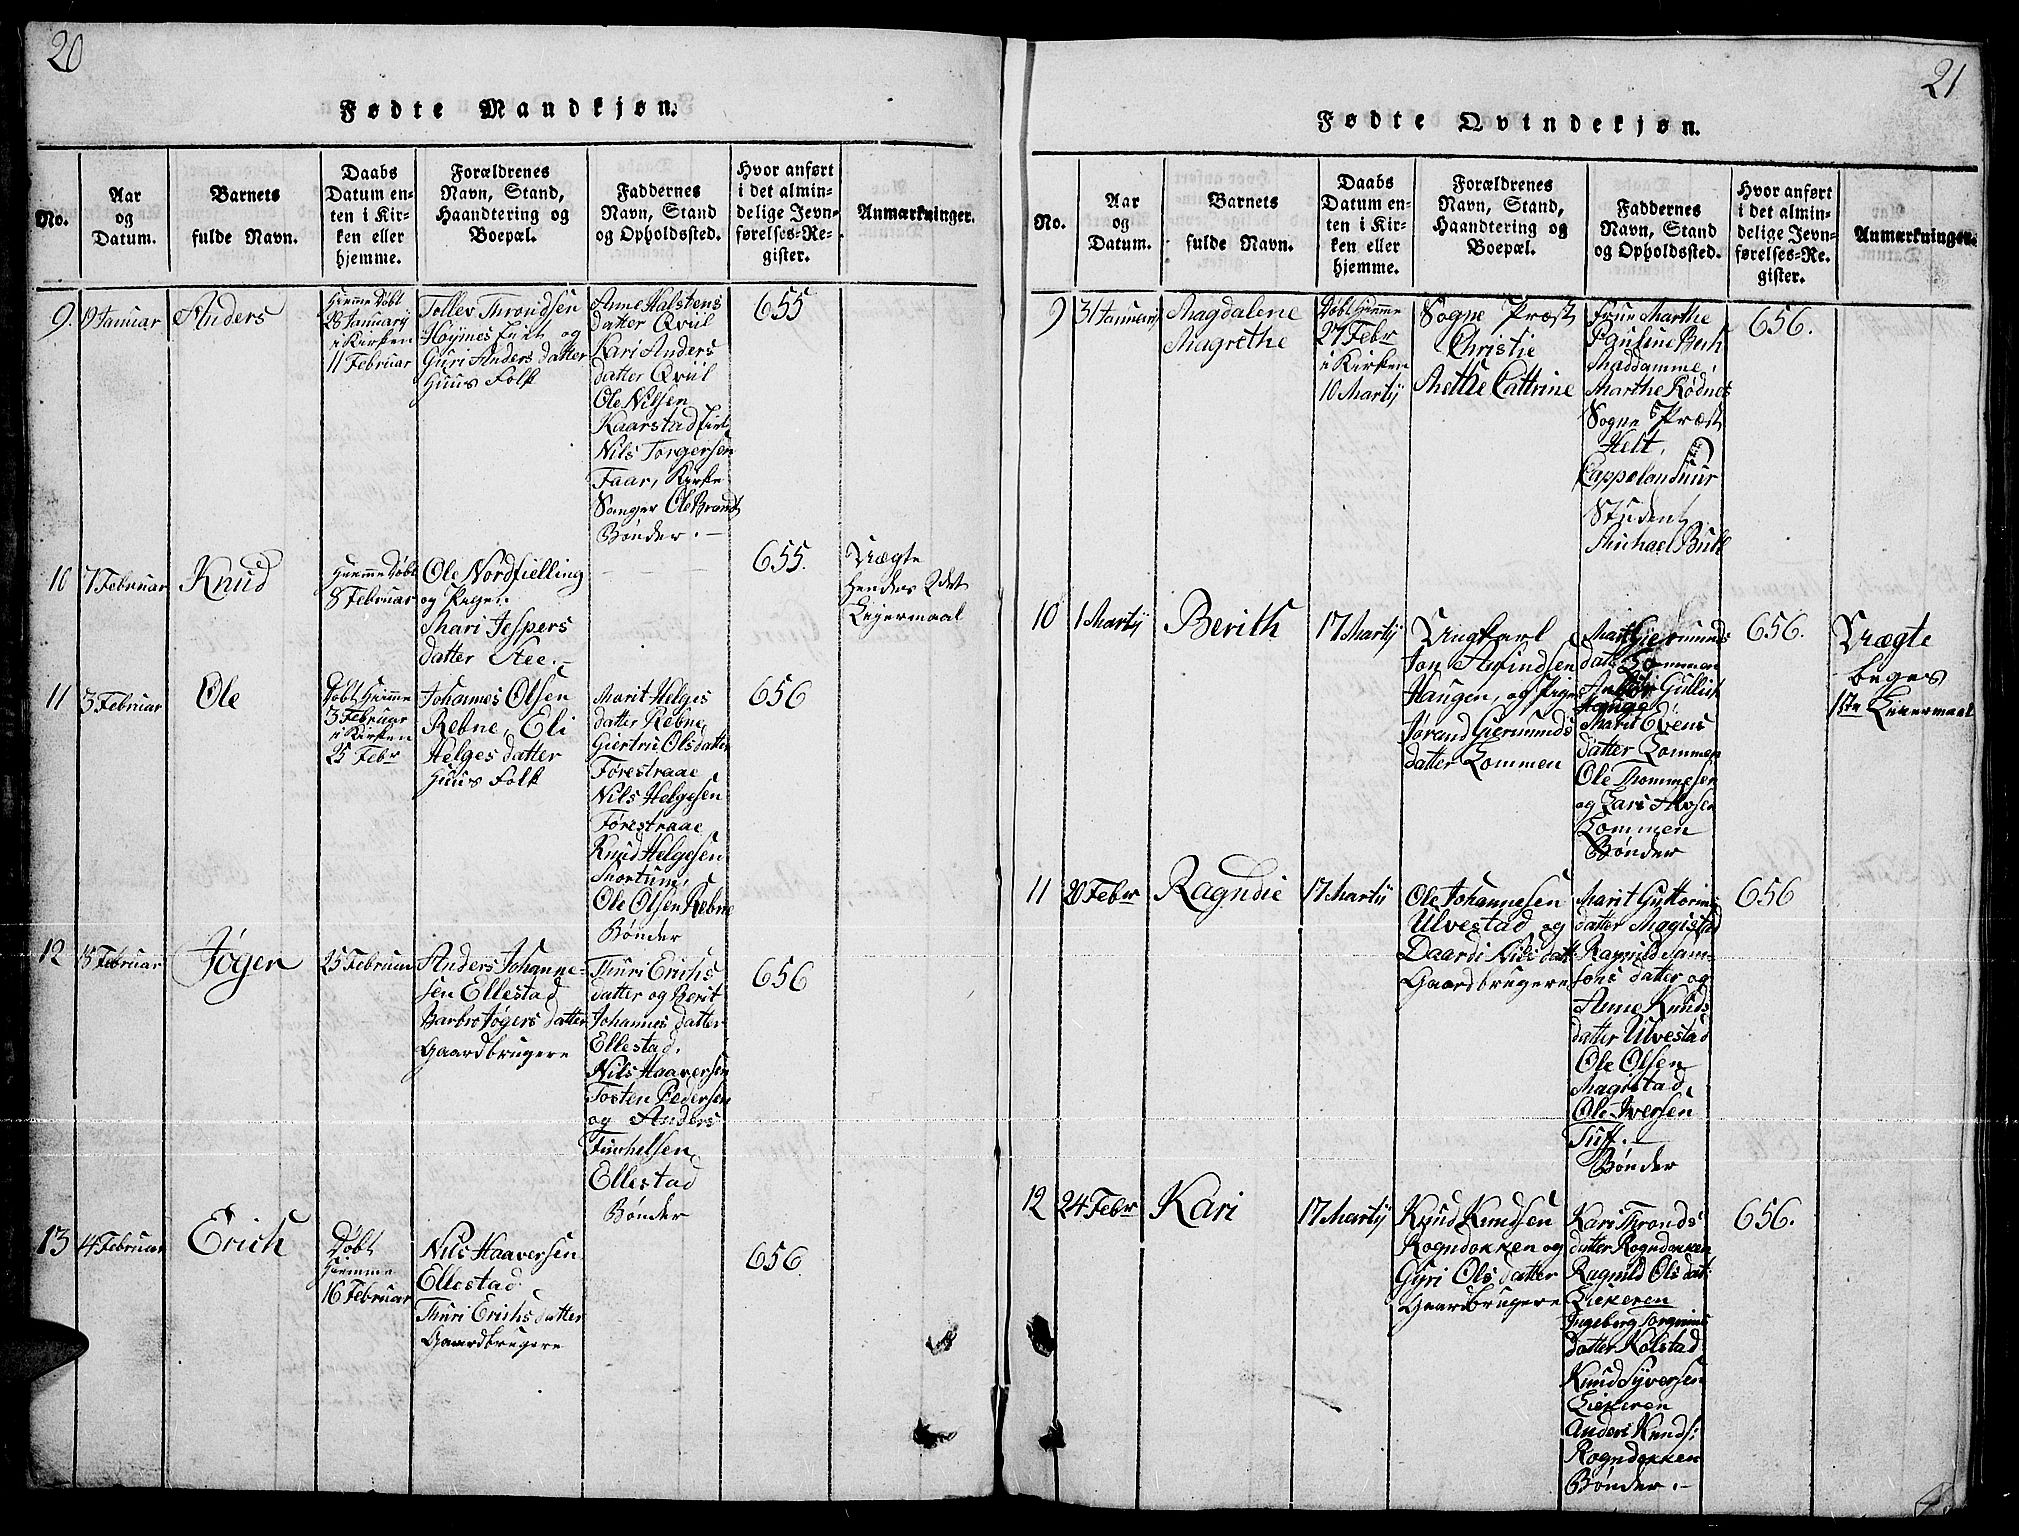 20
Fødte Mandkjøn.
No.
Aar
og
Datum.
Barnets
fulde Navn.
Daabs
Datum en-
ten i Kir-
ken eller
hjemme.
Forældrenes
Navn, Stand,
Haandtering og
Boepæl.
Faddernes
Navn, Stand
og Opholdssted.
Hvor anført
i det almin-
delige Jevn-
førelses-Re-
gister.
Anmærkninger.
9.
Januar
Anders
Hiemme Døbt
28 Januarij
i Kirken
11 Februar
Tollev Trondsen
Guri Anders datter
Huus Folk
Anne Halstens
datter Qviil
Kari Anders
datter Qviil
Ole Nilsen
Kaarstad
Nils Torgersen
Faar, Kirke
Sanger Ole Brandt
Bønder.
655
10
7 Februar
Knud
Hiemme Døbt
8 Februar
Ole Nordfielling
og Pigen
Mari Jespers
datter Stee.
655.
Uægte
hendes 2det
Leiermaal
11
3 Februar
Ole
Døbt Hiemme
3 Februar
i Kirken
25 Febr
Johannes Olsen
Rebne, Eli
Helges datter
Huus Folk
Marit Helges
datter Rebne
Giertru Olsdatter
Førestraae
Nils Helgesen
Førestraae
Knud Helgesen
Mortum,
Ole Olsen Rebne
Bønder
656
12
18 Februar
Jøger
25 Februar
Anders Johanne-
sen Ellestad
Barbro Jøgers datter
Gaardbrugere
Thuri Erichs
datter og Berit
Johannes datter
Ellestad.
Nils Haaversen
Tosten Pedersen
og Anders
Ellestad
Bønder
656
13
14 Februar
Erich
Døbt
Hiemme
16 Februar
Nils Haaversen
Ellestad
Thuri Erichs datter
Gaardbrugere
656.
21
Fødte Qvindekjøn.
No.
Aar
og
Datum.
Barnets
fulde Navn.
Daabs
Datum en-
ten i Kir-
ken eller
hjemme.
Forældrenes
Navn, Stand,
Haandtering og
Boepæl.
Faddernes
Navn, Stand
og Opholdssted.
Hvor anført
i det almin-
delige Jevn-
førelses-Re-
gister.
Anmærkninger.
9
31 Januarij
Magdalene
Magrethe
Døbt Hiemme
27 Febr
i Kirken
10 Martij
Sogne Præst
Christie
Mette Cattrine
Frue Marthe
Pauline Buch
Maddamme
Marthe Rødnes
Sogne Præst
Helt,
Student
Michael
656.
10
1 Martij
Berith
17 Martij
Ungkarl
Jon Arfindsen
Haugen, og Pigen
Jorand Giermunds
datter Lommen
Marit Giermunds
dat. Lommen
Marit Evens
datter Lommen
Ole Thommesen
og Lars Alvsen
Lommen
Bønder
656.
Uægte
beges
1ste Leiermaal
11
20 Febr
Ragndie
17 Martij
Ole Johannesen
Ulvestad og
Daardi Nils datt
Gaardbrugere
Marit Guttorms
datter Magistad
Ragnild Sam-
sons datter og
Anne Knuds
datter Ulvestad
Ole Olsen
Magistad,
Ole Iversen
Tuff.
Bønder
656
12
24 Febr
Kari
17 Martij
Knud Knudsen
Rogndokken og
Gyri Ols datter
Gaardbrugere
Kari Tronds
datter Rogndokken
Ragnild Ols dat.
Liekeren
Ingeberg Torgrims
datter Kolstad
Knud Syversen
Liekeren
Anders Knuds:
Rogndokken
Bønder.
656.